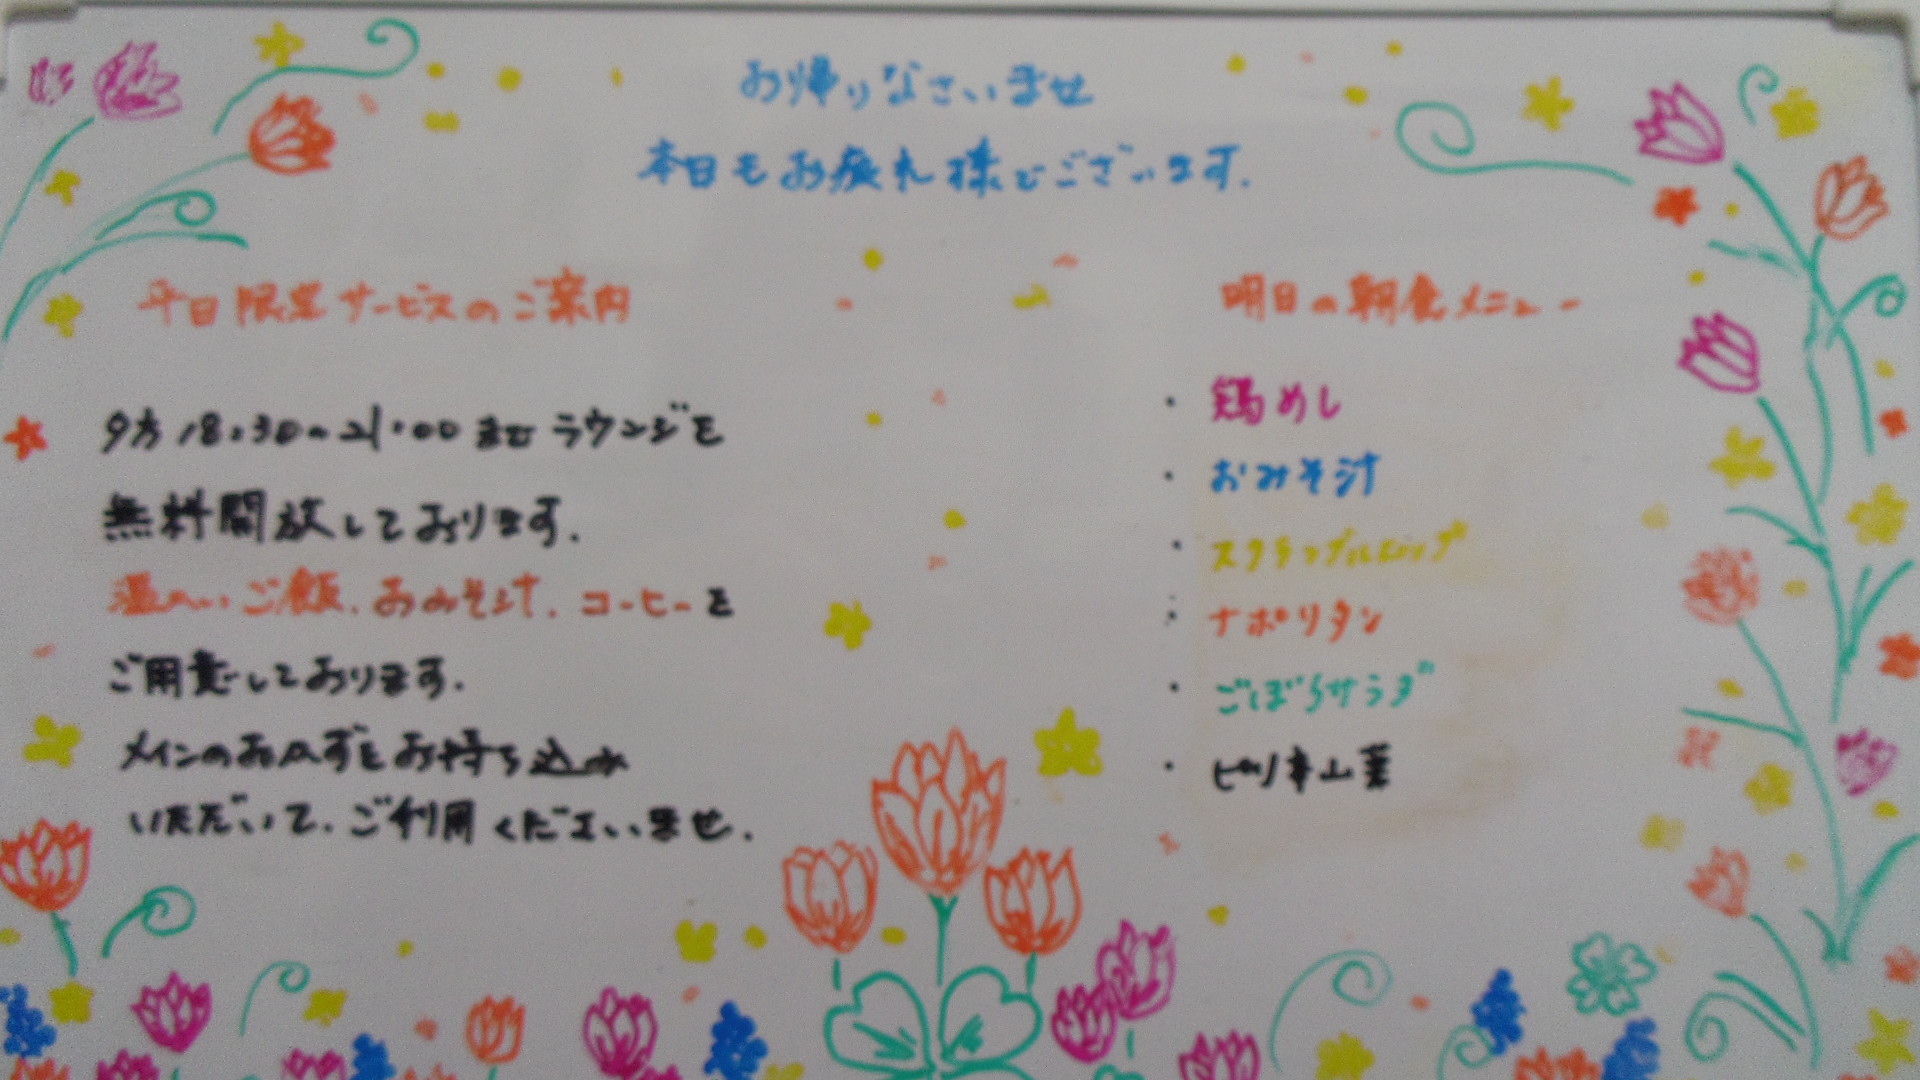 お帰りなさいませ
本日もお疲れ様でございます.
平日限定サービスのご案内
夕方18:30〜21:00までラウンジを
無料開放しております.
温かいご飯、おみそ汁、コーヒーを
ご用意しております.
メインのおかずをお持ち込み
いただいて、ご利用くださいませ.
明日の朝食メニュー
・鶏めし
・おみそ汁
・スクランブルエッグ
・ナポリタン
・ごぼうサラダ
・ピリ辛山菜